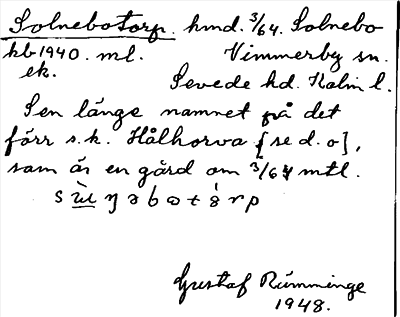 Solnebotorp. hmd. 3/64. Solnebo
kb 1940. ml. Vimmerby sn.
ek. Sevede hd. Kalm l.
Sen länge namnet på det
förr s.k. Hålhorva [se d. o],
som är en gård om 3/64 mtl.
Gustaf Rumminge
1948.